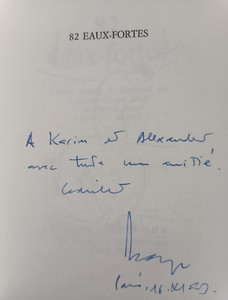 82 EAUX-FORTES
A Karim et Alexander
avec toute mon amitié.
Paris, 16.